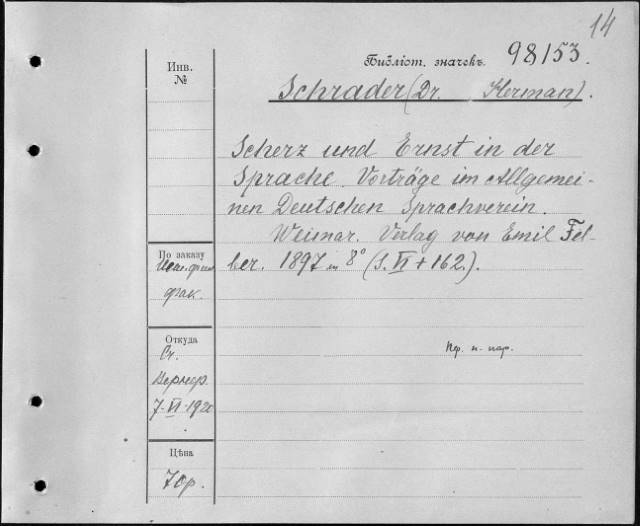 14
Инв.
№
Библіот. значекъ. 98153.
Schrader (Dr. Herman).
Scherz und Ernst in der
Sprache. Vorträge im Allgemei-
nen Deutschen Sprachverein.
Weimar. Verlag von Emil Fel-
ber. 1897 in 8° (S. VI + 162.).
По заказу
фак.
Откуда
Ст.
7-VI-1920
Цѣна
70р.